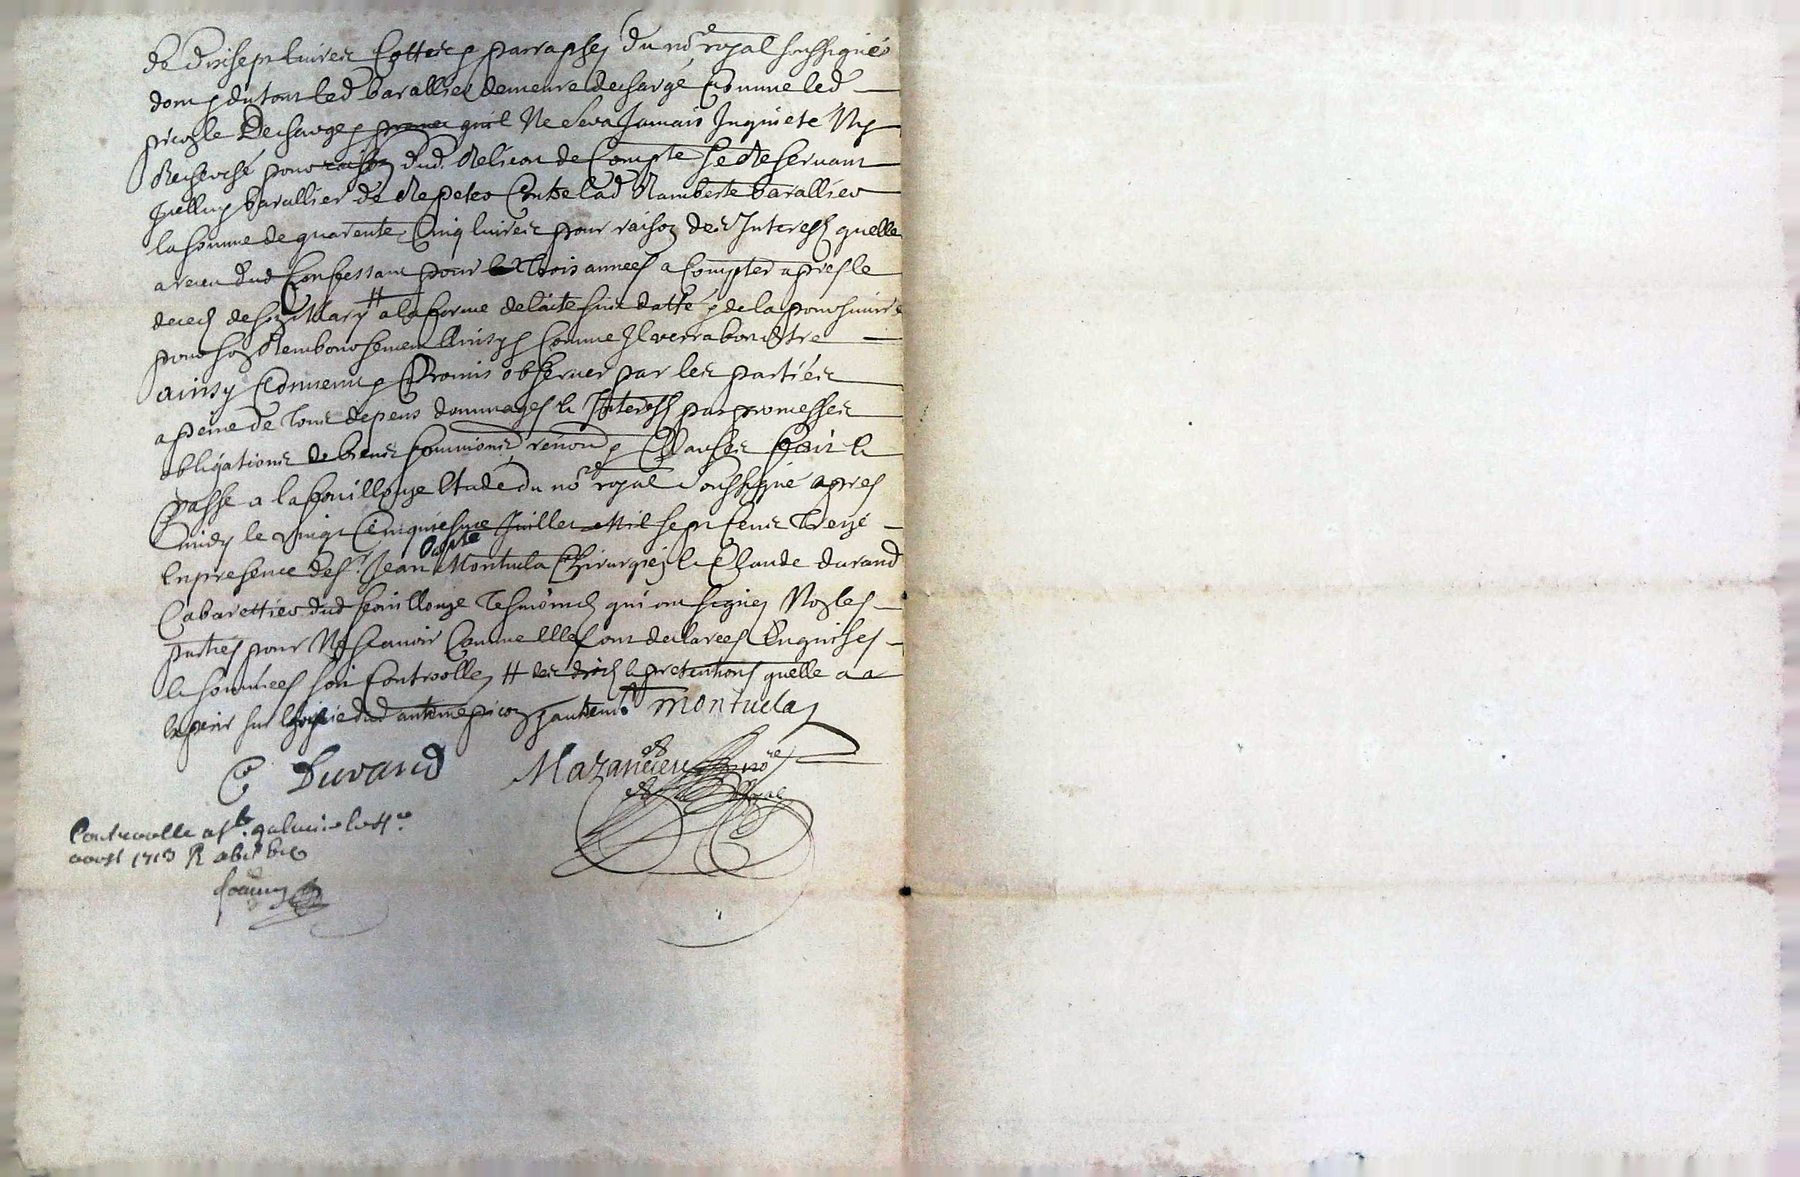 de dixsept livres cottés & parraphes du no.re royal soussigné
dont & du tout led barallier demeure decharge comme led
picq le decharge & qu'il ne sera Jamais Inquieté Ny
Recherché pour raison dud Relicat de Compte se Reservant
Jcelluy barallier de Repeter contre lad Ramberte barallier
la somme de quarente Cinq livres pour raison des Interestz quelle
a receu dud Confessant pour trois années a Compter apres le
deces de son Mary # a la forme de lacte sus datté & de la poursuivre
pour son Remboursement Ainsy & comme Jl verra bon estre
ainsy Convenu & Promis observer par les parties
a peine de tous depens dommages & Interestz par promesses
obligations de biens soumissions renon & Clauses fait &
passé a la fouillouze Etude du no.re royal soussigné apres
midy le vingt Cinquiesme Juillet Mil sept cens treize
En presence de s.r Jean Montucla Chirurgien & Claude durand
Cabarettier dud fouillouze tesmoins qui ont signez Non les
parties pour Ne scavoir comme Elles ont declarees Enquises
& sommées soit Controolle # des droits & pretentions quelle a a
sur dud
Montucla
C Durand Mazancieu no.re
Royal
Controolle a s.t galmier le 4.e
aoust 1713 R